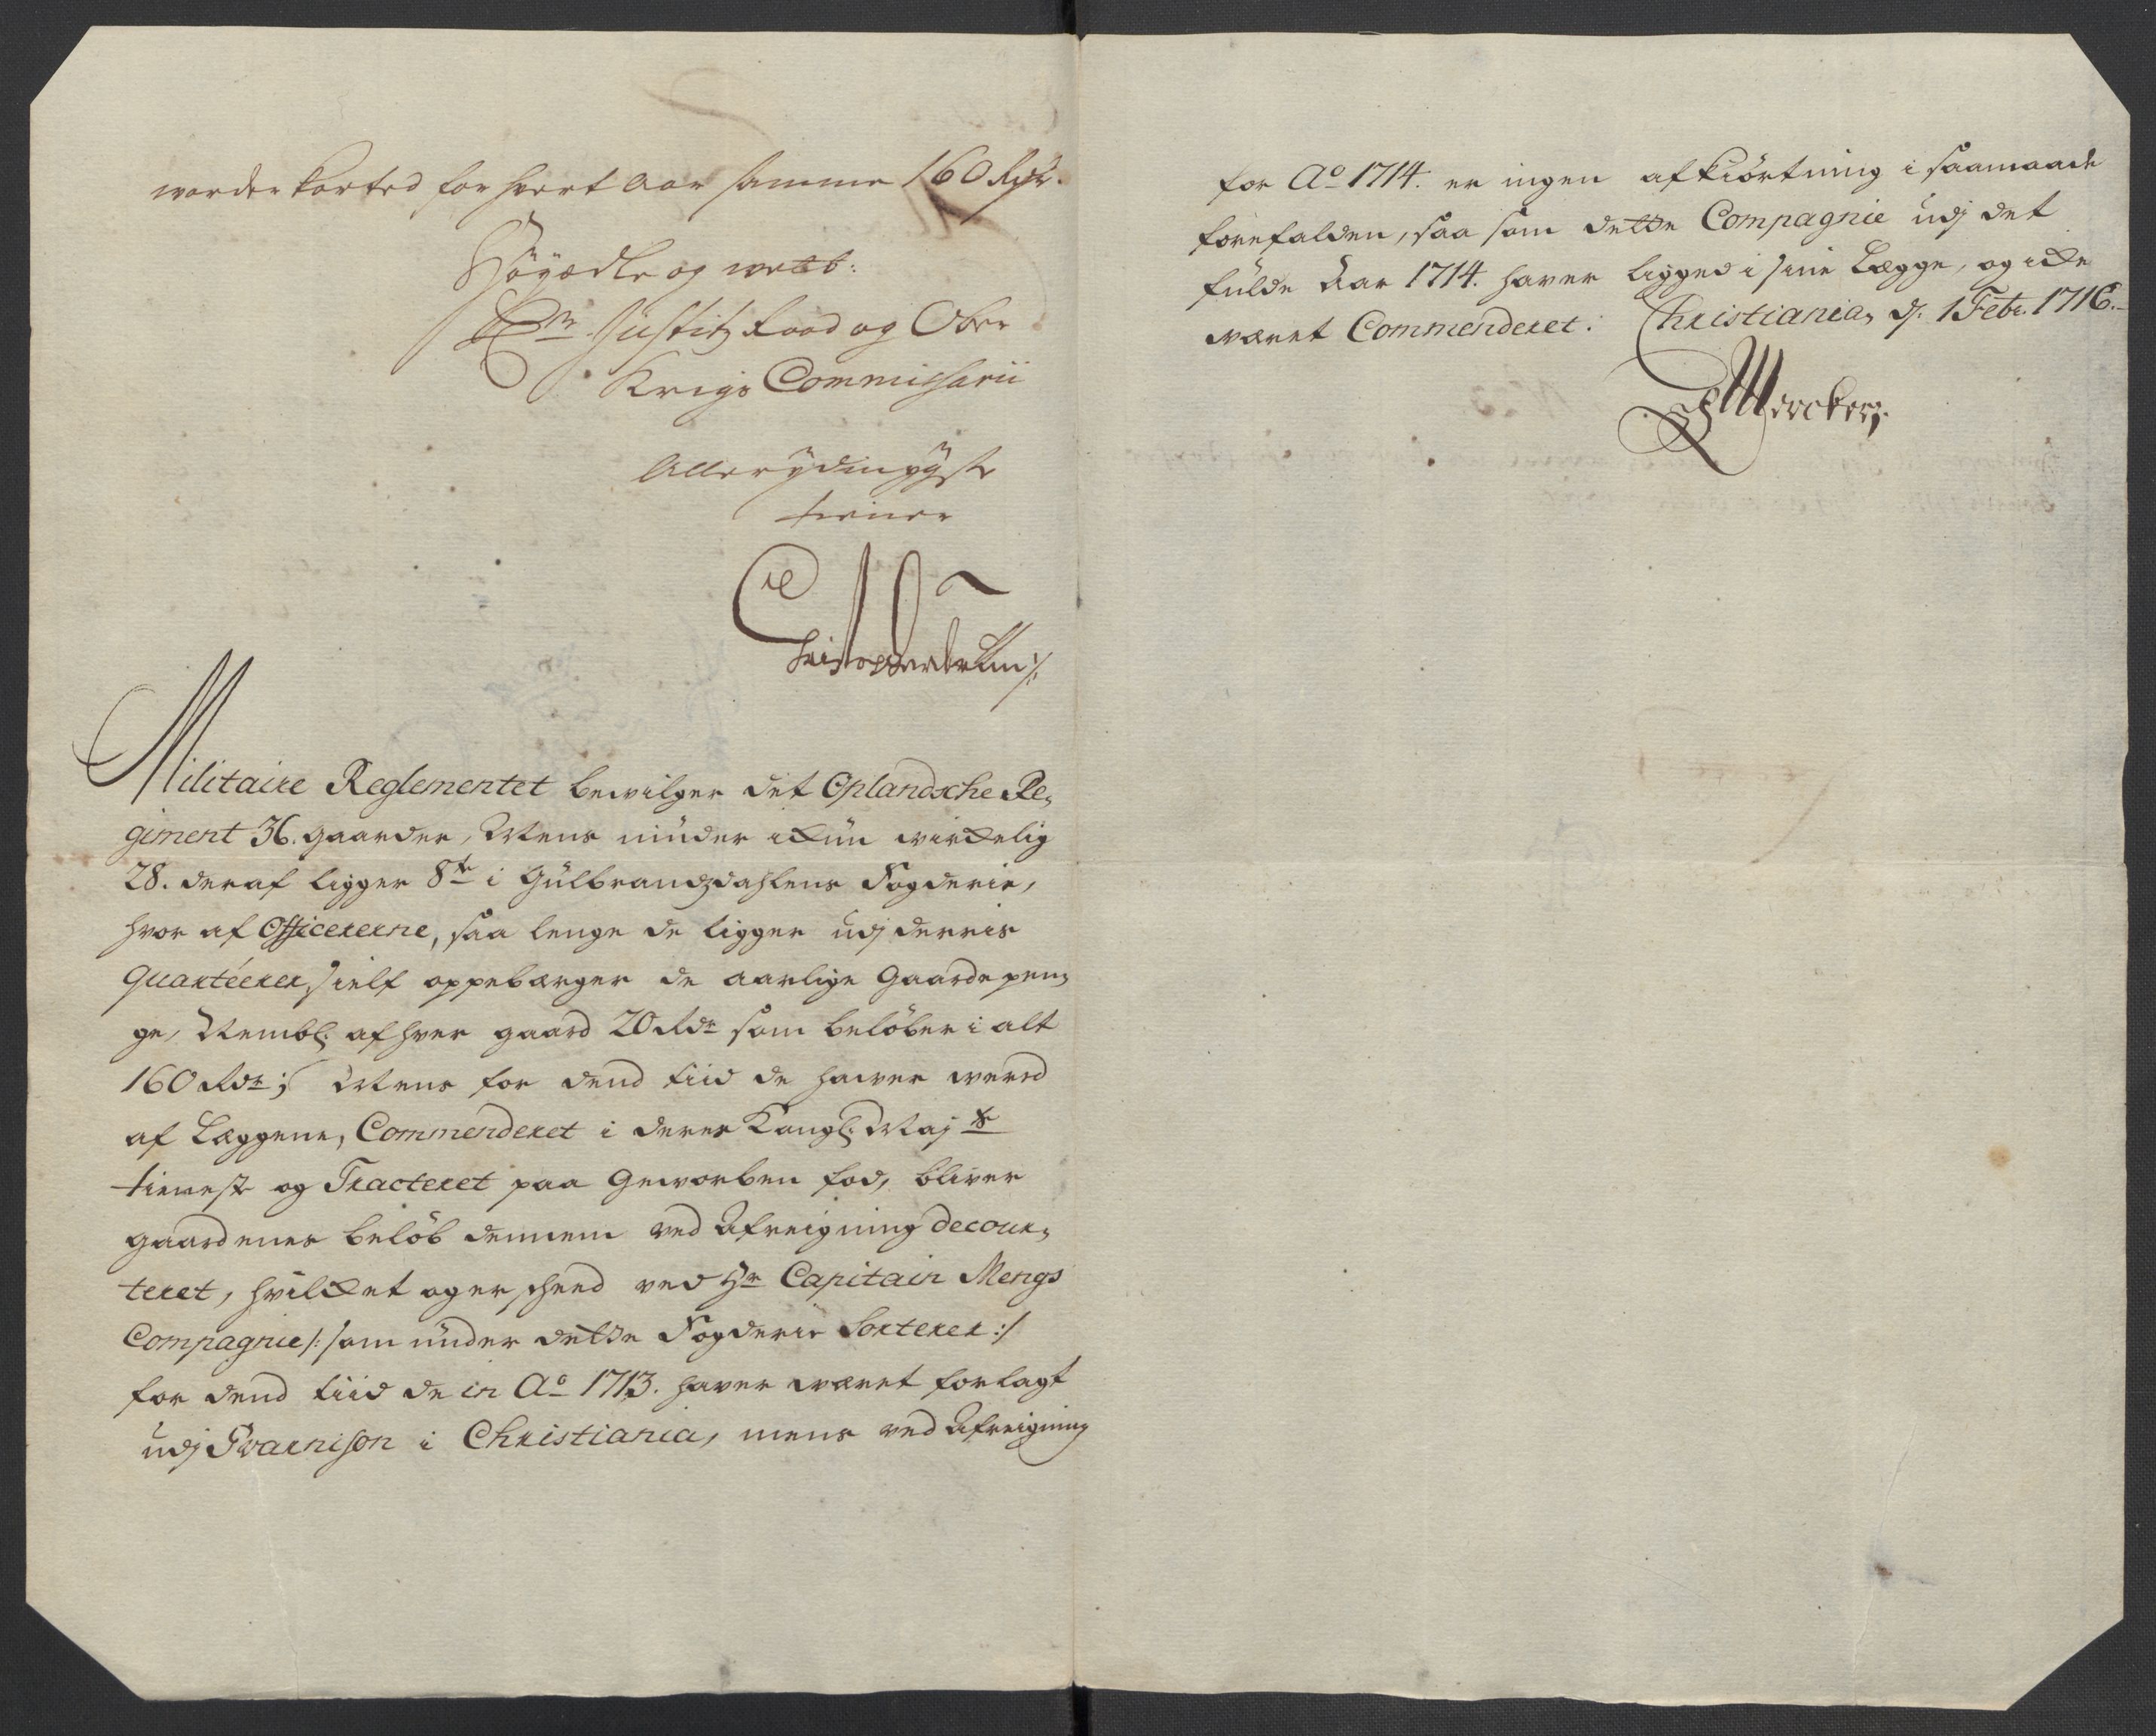 worder korted for hvert Aar samme 160 Rdr.
Höyædle og welb:
Hr Justitz Raad og Ober
Krigs Commissarii
Allerydmygste
tiener
Militaire Reglementet bewilger det Oplandsche Re,
giment 36. gaarder, Mens nu der ickun wirckelig
28. deraf ligger 8te i Gülbrandzdahlens Fogderie,
hvor af Officererne, saa lenge de ligger udj derris
Quartéerer, sielf oppebærger de aarlige Gaarde pen,
ge, Nembl: af hver gaard 20 Rdr som belöber i alt
160 Rdr; Mens for dend tiid de hawer werred
af Læggene, Commenderet i deres Kongl: Majts
tieneste og Tracteret paa Geworben fod, bliver
gaardenes belöb dennem ved Afreigning decour,
teret, hvilcket og er scheed ved Hr Capitain Mengs
Compagnie /: som ünder dette Fogderie Sorterer :/
for dend tiid de in Ao 1713. haver wæret forlagt
udj Gvarnison i Christiania, mens ved Afreigning
for Ao 1714. er ingen afkiörtning i saamaade
forefalden, saa som dette Compagnie udj det
fulde Aar 1714. haver ligged i sine Lægge, og icke
wæret Commenderet. Christiania, d. 1 Febr. 1716.
Werckerz.